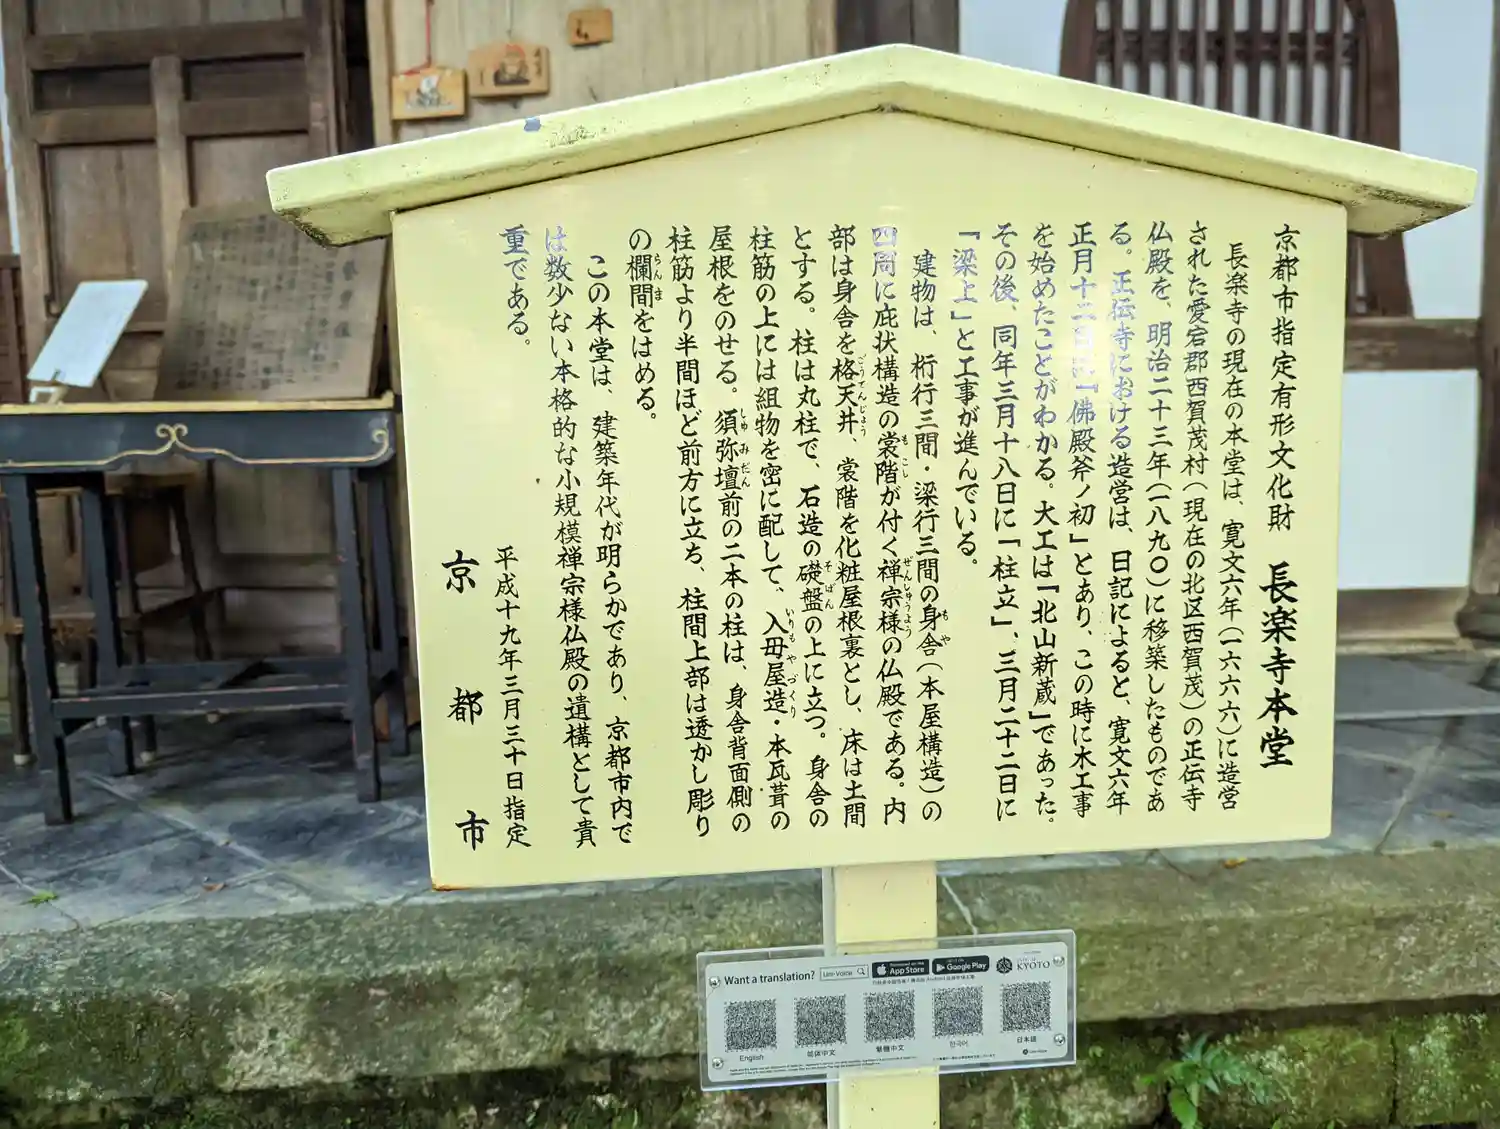 京都市指定有形文化財　長楽寺本堂
長楽寺の現在の本堂は、寛文六年(一六六六)に造営
された愛宕郡西賀茂村(現在の北区西賀茂)の正伝寺
仏殿を、明治二十三年(一八九〇)に移築したものであ
る。正伝寺における造営は、日記によると、寛文六年
正月十二日に『佛殿斧ノ初』とあり、この時に木工事
を始めたことがわかる。大工は「北山新蔵」であった。
その後、同年三月十八日に「柱立」、三月二十二日に
「梁上」と工事が進んでいる。
建物は、桁行三間・梁行三間の身舎(本屋構造)の
もや
四周に庇状構造の裳階が付く禅宗様の仏殿である。内
もこし
ぜんしゅうよう
部は身舎を格天井、裳階を化粧屋根裏とし、床は土間
ごうてんじょう
とする。柱は丸柱で、石造の礎盤の上に立つ。身舎の
そばん
柱筋の上には組物を密に配して、入母屋造・本瓦葺の
いりもやづくり
屋根をのせる。須弥壇前の二本の柱は、身舎背面側の
しゅみだん
柱筋より半間ほど前方に立ち、柱間上部は透かし彫り
の欄間をはめる。
らんま
この本堂は、建築年代が明らかであり、京都市内で
は数少ない本格的な小規模禅宗様仏殿の遺構として貴
重である。
平成十九年三月三十日指定
京都市
Want a translation?
Uni-Voice
App Store
Google Play
KYOTO
English
简体中文
繁體中文
한국어
日本語